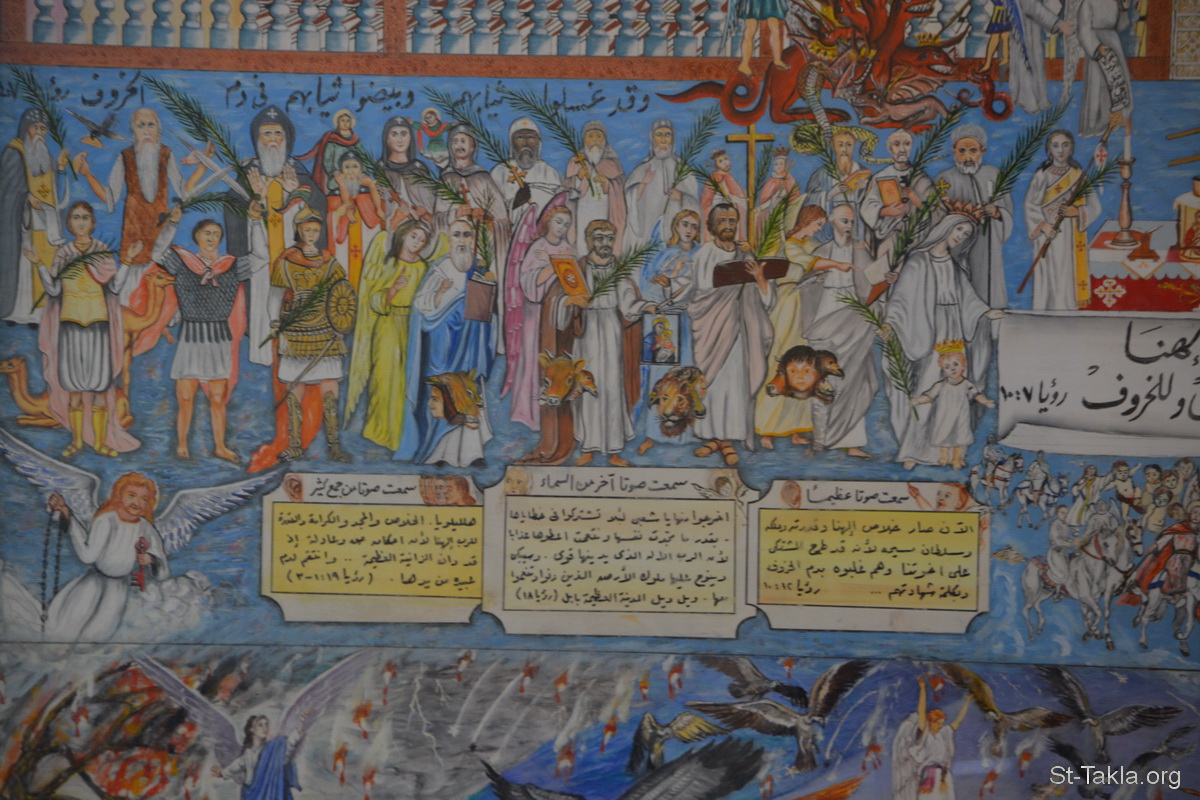 وقد غسلوا ثيابهم وبيضوا ثيابهم فى دم الخروف
للخروف رؤيا ١٠:٧
سمعت صوتا من جمع كثير
هلليلويا. الخلاص والمجد والكرامة والقدرة
للرب إلهنا لأن احكامه حق وعادلة إذ
قد دان الزانية العظيمة .. وانتقم لدم
عبيده من يدها . (رؤيا ١:١٩-٣)
سمعت صوتا آخر من السماء
اخرجوا منها يا شعبى لئلا تشتركوا فى خطاياها
بقدر ما مجدت نفسها وتنعمت اعطوها عذابا
لأن الرب الاله الذى يدينها قوى . وسيبكى
وينوح عليها ملوك الأرض الذين زنوا وتنعموا
معها - ويل ويل المدينة العظيمة بابل (رؤيا ١٨)
سمعت صوتا عظيمًا
الآن صار خلاص إلهنا وقدرته وملكه
وسلطان مسيحه لأنه قد طرح المشتكى
على اخوتنا وهم غلبوه بدم الخروف
وبكلمة شهادتهم ... رؤيا ١٠:١٢
St-Takla.org